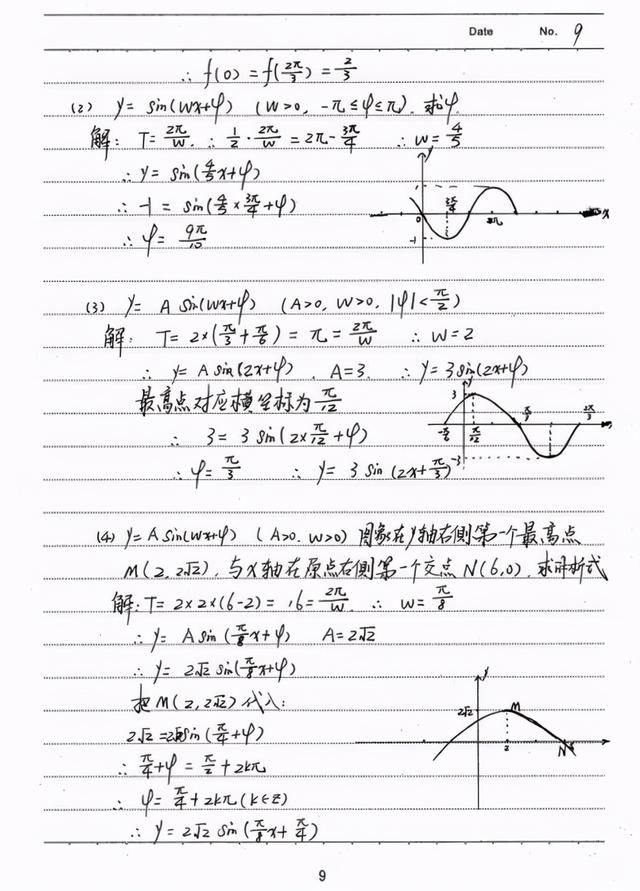 Date No. 9
∴ f(0) = f(2π/3) = 2/3
(2) y = sin(wx+φ) (w>0, -π≤φ≤π). 求φ.
解: T = 2π/w. ∴ 1/2 · 2π/w = 2π - 3π/4 ∴ w = 4/5
∴ y = sin(4/5x+φ)
∴ -1 = sin(4/5 × 3π/4 + φ)
∴ φ = 9π/10
y
3π/4
0 2π x
-1
(3) y = A sin(wx+φ) (A>0, w>0, |φ|<π/2)
解: T = 2×(π/3 + π/6) = π = 2π/w ∴ w=2
∴ y = A sin(2x+φ). A=3. ∴ y = 3 sin(2x+φ)
最高点对应横坐标为 π/12
∴ 3 = 3 sin(2×π/12 + φ)
∴ φ = π/3 ∴ y = 3 sin(2x+π/3)
y
3
-π/6 π/12 π/3
-3
(4) y = A sin(wx+φ) (A>0. w>0) 图象在y轴右侧第一个最高点
M(2, 2√2), 与x轴在原点右侧第一个交点 N(6,0). 求解析式
解: T = 2×2×(6-2) = 16 = 2π/w ∴ w = π/8
∴ y = A sin(π/8x+φ) A=2√2
∴ y = 2√2 sin(π/8x+φ)
把M(2, 2√2)代入:
2√2 = 2√2 sin(π/4+φ)
∴ π/4+φ = π/2 + 2kπ
∴ φ = π/4 + 2kπ (k∈Z)
∴ y = 2√2 sin(π/8x + π/4)
y
2√2 M
2 N
9